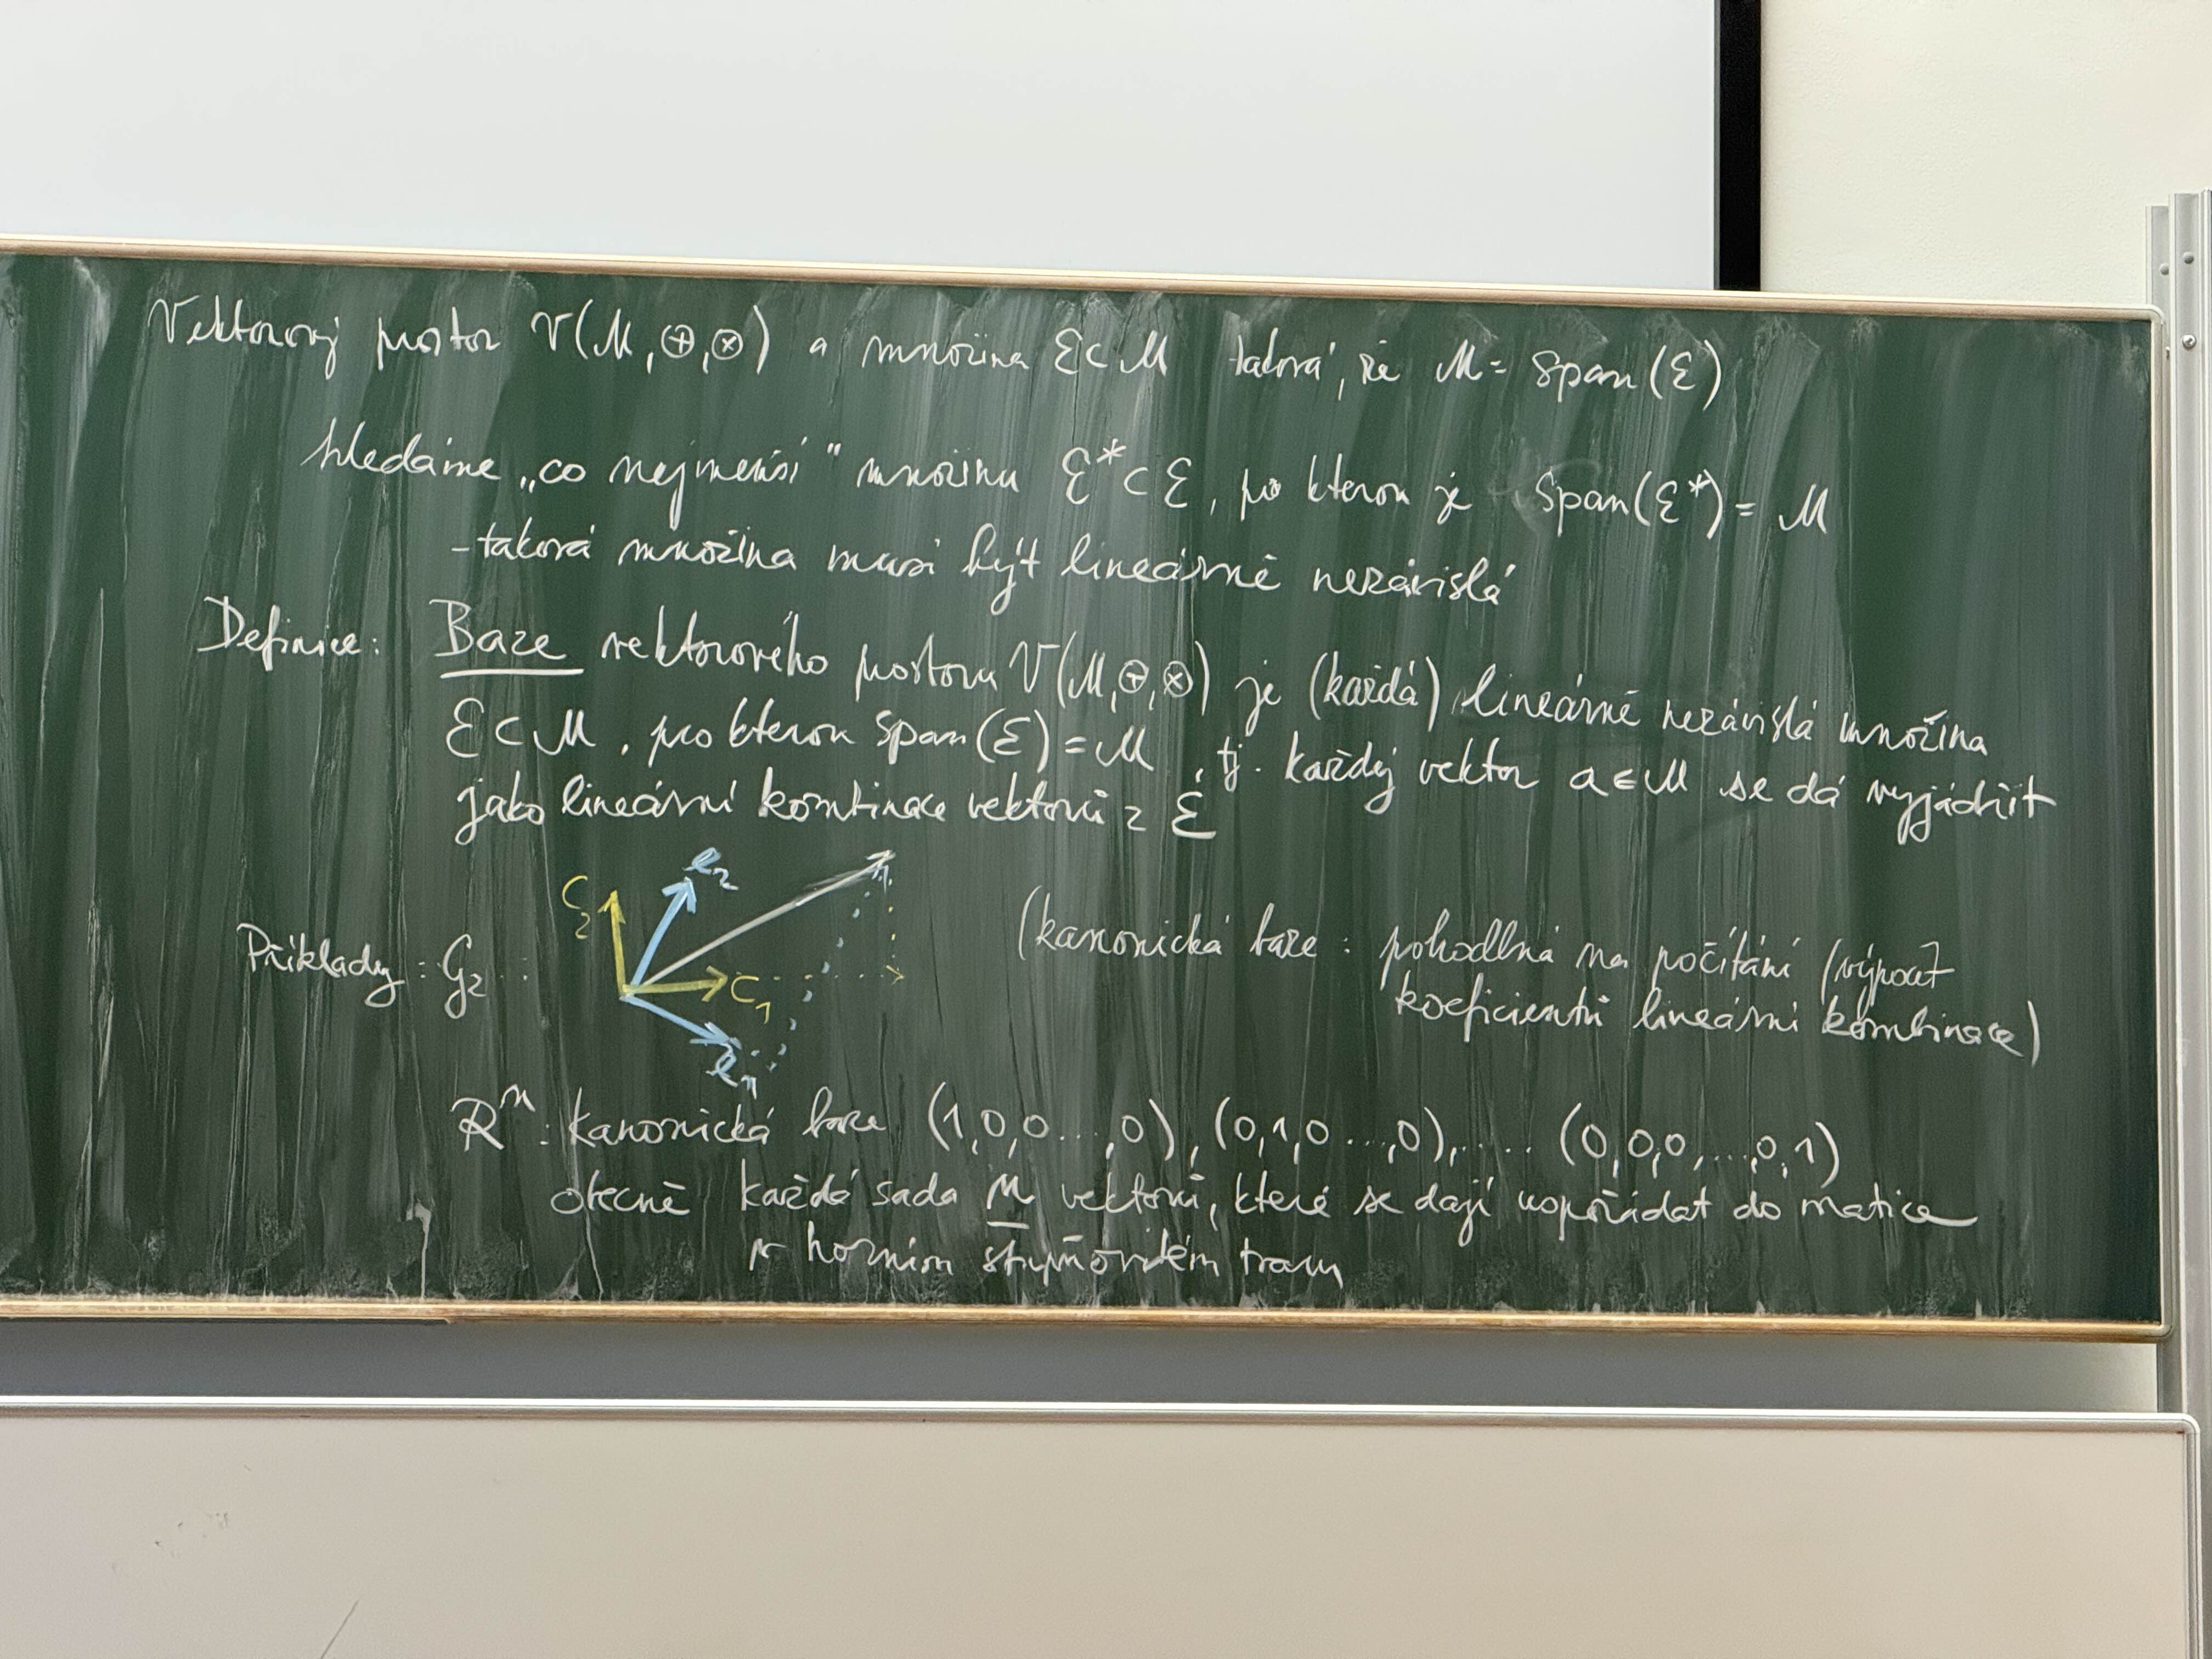 Vektorový prostor V(M,⊕,⊗) a množina Ɛ⊂M taková, že M = Span(Ɛ)
hledáme „co nejmenší“ množinu Ɛ*⊂Ɛ, pro kterou je Span(Ɛ*) = M
- taková množina musí být lineárně nezávislá
Definice: Báze vektorového prostoru V(M,⊕,⊗) je (každá) lineárně nezávislá množina
Ɛ⊂M, pro kterou Span(Ɛ) = M, tj. každý vektor a∈M se dá vyjádřit
jako lineární kombinace vektorů z Ɛ
e₂
C₂
Příklady: G₂ :
C₁
e₁
(kanonická báze: pohodlná na počítání (výpočet
koeficientů lineární kombinace)
Rⁿ: kanonická báze (1,0,0...,0), (0,1,0...,0),.... (0,0,0,...,0,1)
obecně každá sada n vektorů, které se dají uspořádat do matice
v horním stupňovitém tvaru